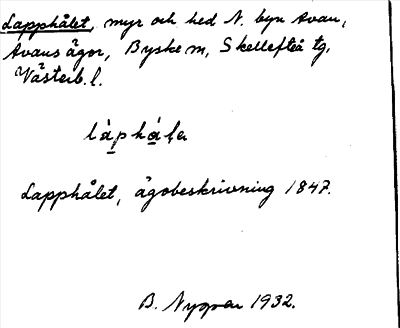 Lapphålet, myr och hed N. byn Avan,
Avans ägor, Byske sn, Skellefteå tg,
Västerb. l.
Lapphålet, ägobeskrivning 1847.
B. Nyman 1932.